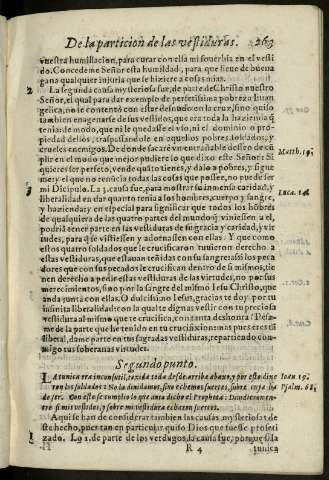 De la particion de las vestiduras. 263
vuestra humillacion, para curar con ella mi soberbia en el vesti
do. Concedeme Señor esta humildad, para que lleue de buena
gana qualquier injuria que se hiziere a cosas mias.
La segunda causa mysteriosa fue, de parte de Christo nuestro
Señor, el qual para dar exemplo de perfetissima pobreza Euan
gelica, no se contentò con estar desnudo en la cruz, sino quiso
tambien enagenarse de sus vestidos, que era toda la hazienda q̃
tenia: de modo, que ni le quedasse el vso, ni el dominio o pro
piedad dellos, traspassandole en aquellos pobres soldados, y
crueles enemigos. De donde sacarè vn entrañable desseo de cũ
plir en el modo que mejor pudiere lo que dixo este Señor: Si
quieres ser perfeto, vende quãto tienes, y dalo a pobres, y sigue
me: y el que no renũcia todas las cosas que possee, no puede ser
mi Dicipulo. La 3. causa fue, para mostrar su inmensa caridad, y
liberalidad en dar quanto tenia a los hombres, cuerpo y sangre,
y hazienda: y en especial para significar que todos los hõbres
de qualquiera de las quatro partes del mundo q̃ viniessen a el,
podriã tener parte en las vestiduras de su gracia y caridad, y vir
tudes, para q̃ se vistiessen y adornassen con ellas. Y que como
estos quatro soldados que le crucificaron tuuieron derecho a
estas vestiduras, que estauan teñidas con su sangre: assi los peca
dores que con sus pecados le crucificã dentro de si mismos, tie
nen derecho a pedir estas vestiduras de las virtudes, no por sus
merecimientos, sino por la sangre del mismo Iesu Christo, que
anda junta con ellas. O dulcissimo Iesus, gracias te doy por tu
infinita liberalidad: con la qual te dignas vestir con tu preciosa
vestidura al mismo que te crucifica, con tanta deshonra? Pesa-
me de la parte que he tenido en tu crucifixion: mas pues eres tã
liberal, dame parte en tus sagradas vestiduras, repartiendo con-
migo tus soberanas virtudes.
Segundo punto.
La tunica era inconsutil, texida toda desde arriba abaxo, y por esto dixe
ron los soldados: No la diuidamos, sino echemos suertes, sobre cuya ha
de ser. Con esto se cumplio lo que auia dicho el Propheta: Diuidieron en-
tre si mis vestidos, y sobre mi vestidura echaron suertes.
Aqui se han de considerar tambien las causas mysteriosas de
este hecho, pues tan en particular quiso Dios que fuesse profeti
zado. La 1. de parte de los verdugos, la causa fue, porque si la
R 4
tunica
Matth. 19.
Luca. 14.
Ioan 19.
Psalm. 68.
3
1